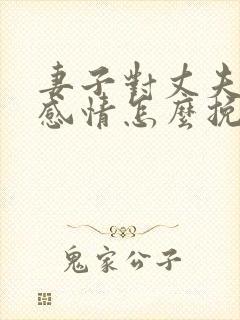 妻子對丈夫
感情怎麼挽
鬼家公子